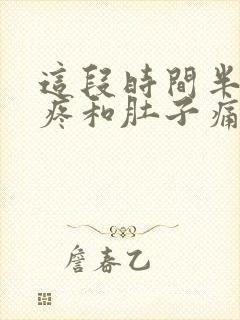 這段時間半
疼和肚子痛
詹春乙